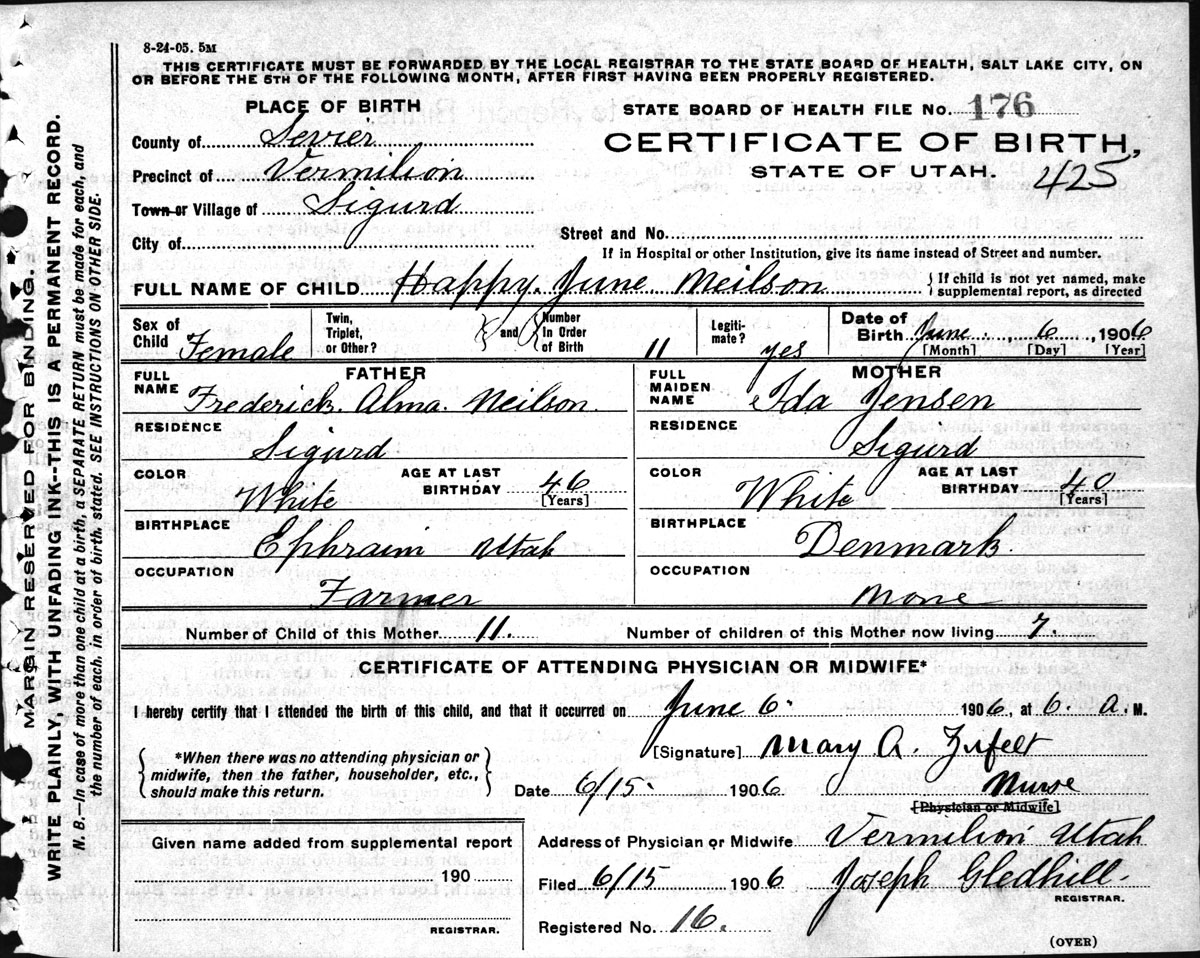 8-24-05. 5M
THIS CERTIFICATE MUST BE FORWARDED BY THE LOCAL REGISTRAR TO THE STATE BOARD OF HEALTH, SALT LAKE CITY, ON
OR BEFORE THE 5TH OF THE FOLLOWING MONTH, AFTER FIRST HAVING BEEN PROPERLY REGISTERED.
PLACE OF BIRTH
STATE BOARD OF HEALTH FILE No. 176
CERTIFICATE OF BIRTH,
STATE OF UTAH. 425
County of Sevier
Precinct of Vermilion
Town or Village of Sigurd
City of
Street and No.
If in Hospital or other Institution, give its name instead of Street and number.
FULL NAME OF CHILD Happy June Neilson { If child is not yet named, make
supplemental report, as directed
Sex of Child Female
Twin, Triplet, or Other? } and { Number In Order of Birth 11
Legitimate? yes
Date of Birth June 6, 1906
[Month] [Day] [Year]
FATHER
FULL NAME Frederick Alma Neilson
RESIDENCE
Sigurd
COLOR White AGE AT LAST BIRTHDAY 46
[Years]
BIRTHPLACE
Ephraim Utah
OCCUPATION
Farmer
MOTHER
FULL MAIDEN NAME Ida Jensen
RESIDENCE
Sigurd
COLOR White AGE AT LAST BIRTHDAY 40
[Years]
BIRTHPLACE
Denmark
OCCUPATION
None
Number of Child of this Mother 11. Number of children of this Mother now living 7.
CERTIFICATE OF ATTENDING PHYSICIAN OR MIDWIFE*
I hereby certify that I attended the birth of this child, and that it occurred on June 6. 1906, at 6. a. M.
{ *When there was no attending physician or
midwife, then the father, householder, etc.,
should make this return. }
[Signature] Mary A. Zufelt
Date 6/15. 1906 Nurse
[Physician or Midwife]
Given name added from supplemental report
190
REGISTRAR.
Address of Physician or Midwife Vermilion Utah
Filed 6/15 1906 Joseph Gledhill.
REGISTRAR.
Registered No. 16.
(OVER)
MARGIN RESERVED FOR BINDING.
WRITE PLAINLY, WITH UNFADING INK--THIS IS A PERMANENT RECORD.
N. B.—In case of more than one child at a birth, a SEPARATE RETURN must be made for each, and
the number of each, in order of birth, stated. SEE INSTRUCTIONS ON OTHER SIDE.